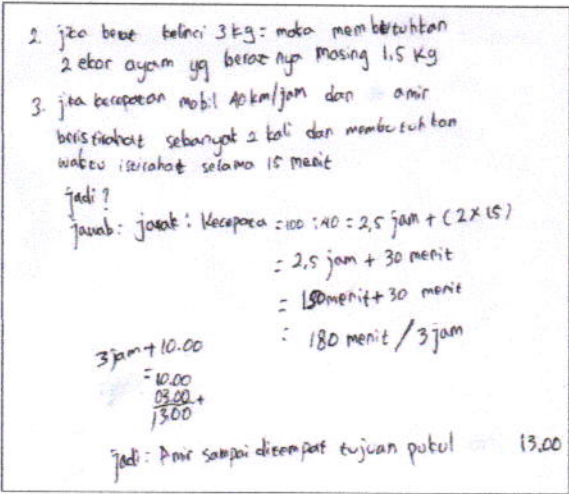 2. jika berat kelinci 3 kg : maka membutuhkan
2 ekor ayam yg beratnya masing 1,5 kg
3. jika kecepatan mobil 40 km/jam dan amir
beristirahat sebanyak 2 kali dan membutuhkan
waktu istirahat selama 15 menit
jadi ?
jawab : jarak : Kecepata = 100 : 40 = 2,5 jam + ( 2 x 15 )
= 2,5 jam + 30 menit
= 150 menit + 30 menit
= 180 menit / 3 jam
3 jam + 10.00
= 10.00
03.00 +
13.00
jadi : Amir sampai ditempat tujuan pukul 13.00